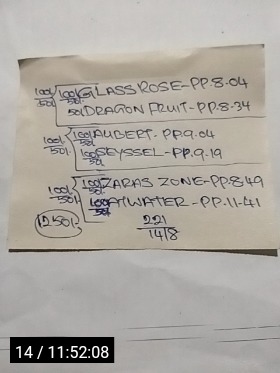 100/- 50/- 100/- 50/- GLASS ROSE-PP.8-04
50/- DRAGON FRUIT-PP.8-34
100/- 50/- 100/- 50/- AUBERT-PP.9.04
100/- 50/- SEYSSEL-PP.9-19
100/- 50/- 100/- 50/- ZARAS ZONE-PP.8-49
100/- 50/- ATWATER-PP.11-41
1250/- 221
1418
14 / 11:52:08